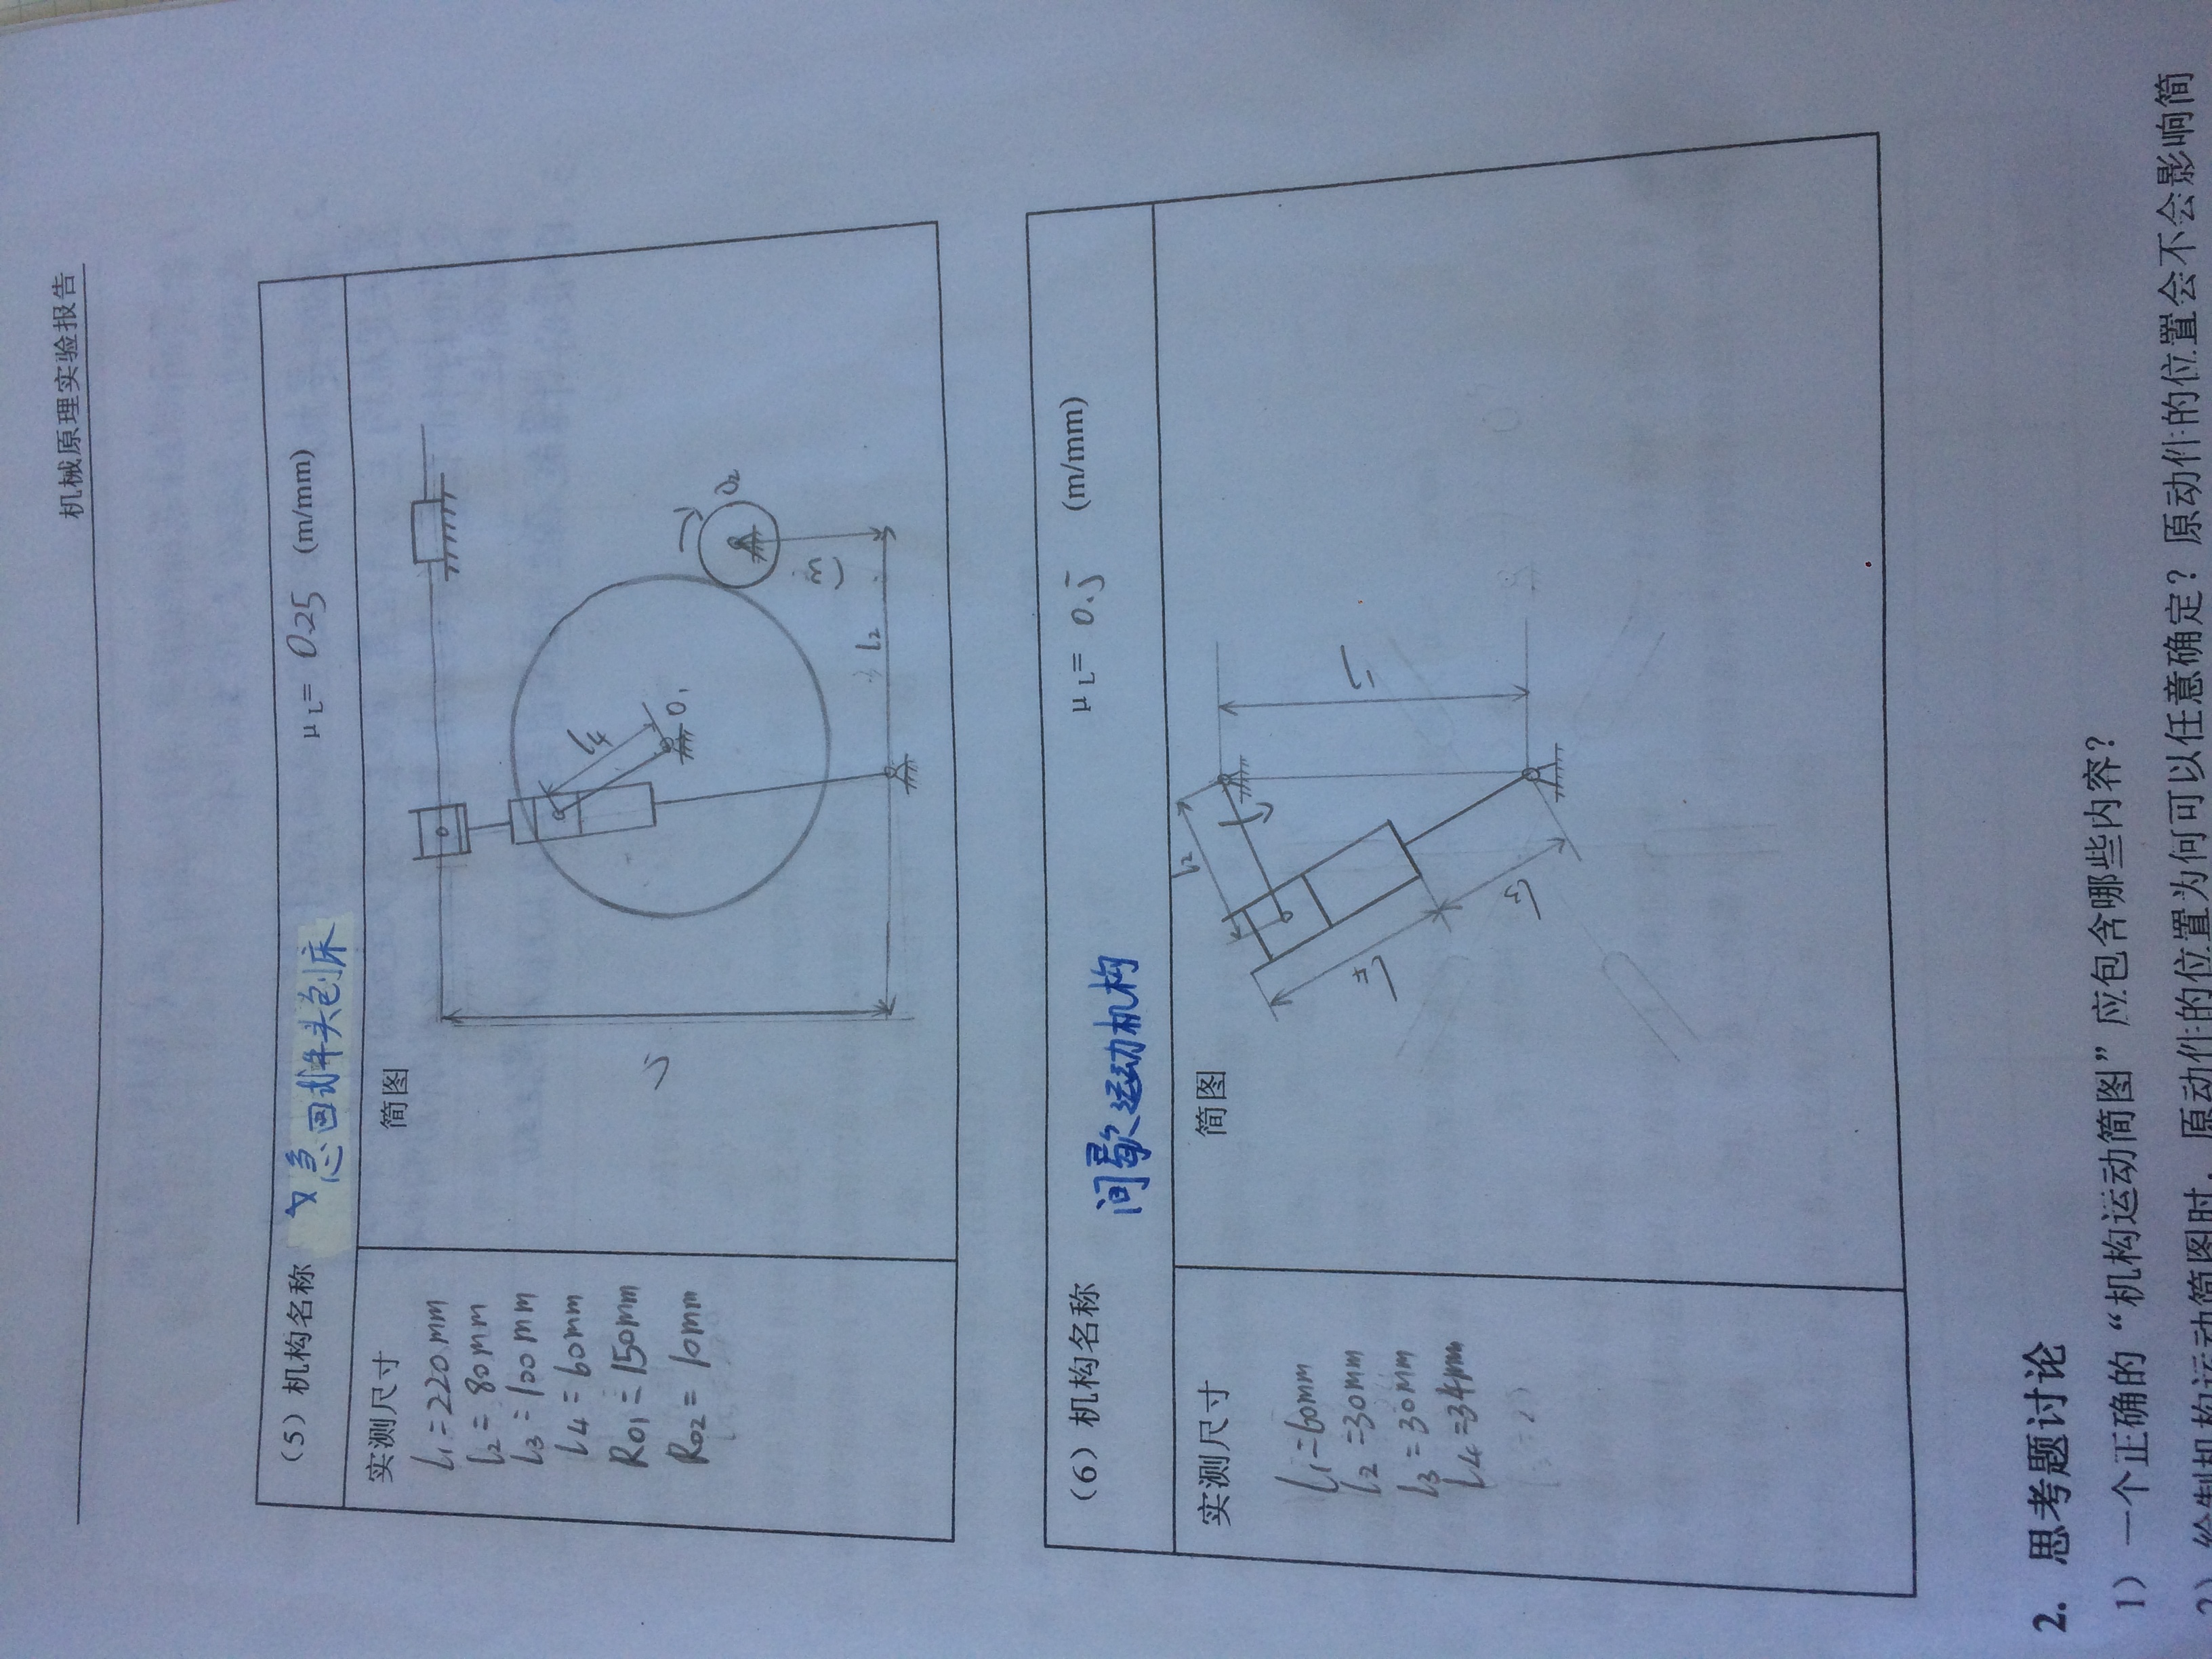 机械原理实验报告
(5)机构名称 急回式牛头刨床 μL= 0.25 (m/mm)
实测尺寸
l1=220mm
l2=80mm
l3=100mm
l4=60mm
R01=150mm
R02=10mm
简图
l4
l1
O1
O2
l3
l2
(6)机构名称 间歇运动机构 μL= 0.5 (m/mm)
实测尺寸
l1=60mm
l2=30mm
l3=30mm
l4=34mm
简图
l2
l4
l1
l3
2. 思考题讨论
1)一个正确的“机构运动简图”应包含哪些内容?
2)绘制机构运动简图时,原动件的位置为何可以任意确定?原动件的位置会不会影响简